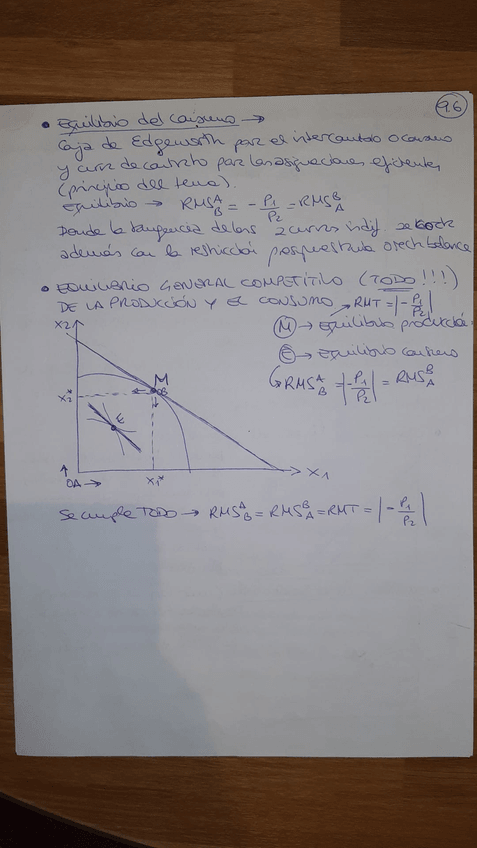 9.6
• Equilibrio del consumo →
Caja de Edgeworth para el intercambio o consumo
y curva de contrato para las asignaciones eficientes
(principio del tema).
Equilibrio → RMS^A_B = - P1/P2 = RMS^B_A
Donde la tangencia de las 2 curvas indif. se
además con la restricción presupuestaria o recta balance
• EQUILIBRIO GENERAL COMPETITIVO (TODO!!!)
DE LA PRODUCCIÓN Y EL CONSUMO
RMT = |- P1/P2|
M → Equilibrio producción
E → Equilibrio consumo
RMS^A_B = |- P1/P2| = RMS^B_A
X2
M
OB
X2*
E
OA →
X1*
X1
Se cumple TODO → RMS^A_B = RMS^B_A = RMT = |- P1/P2|